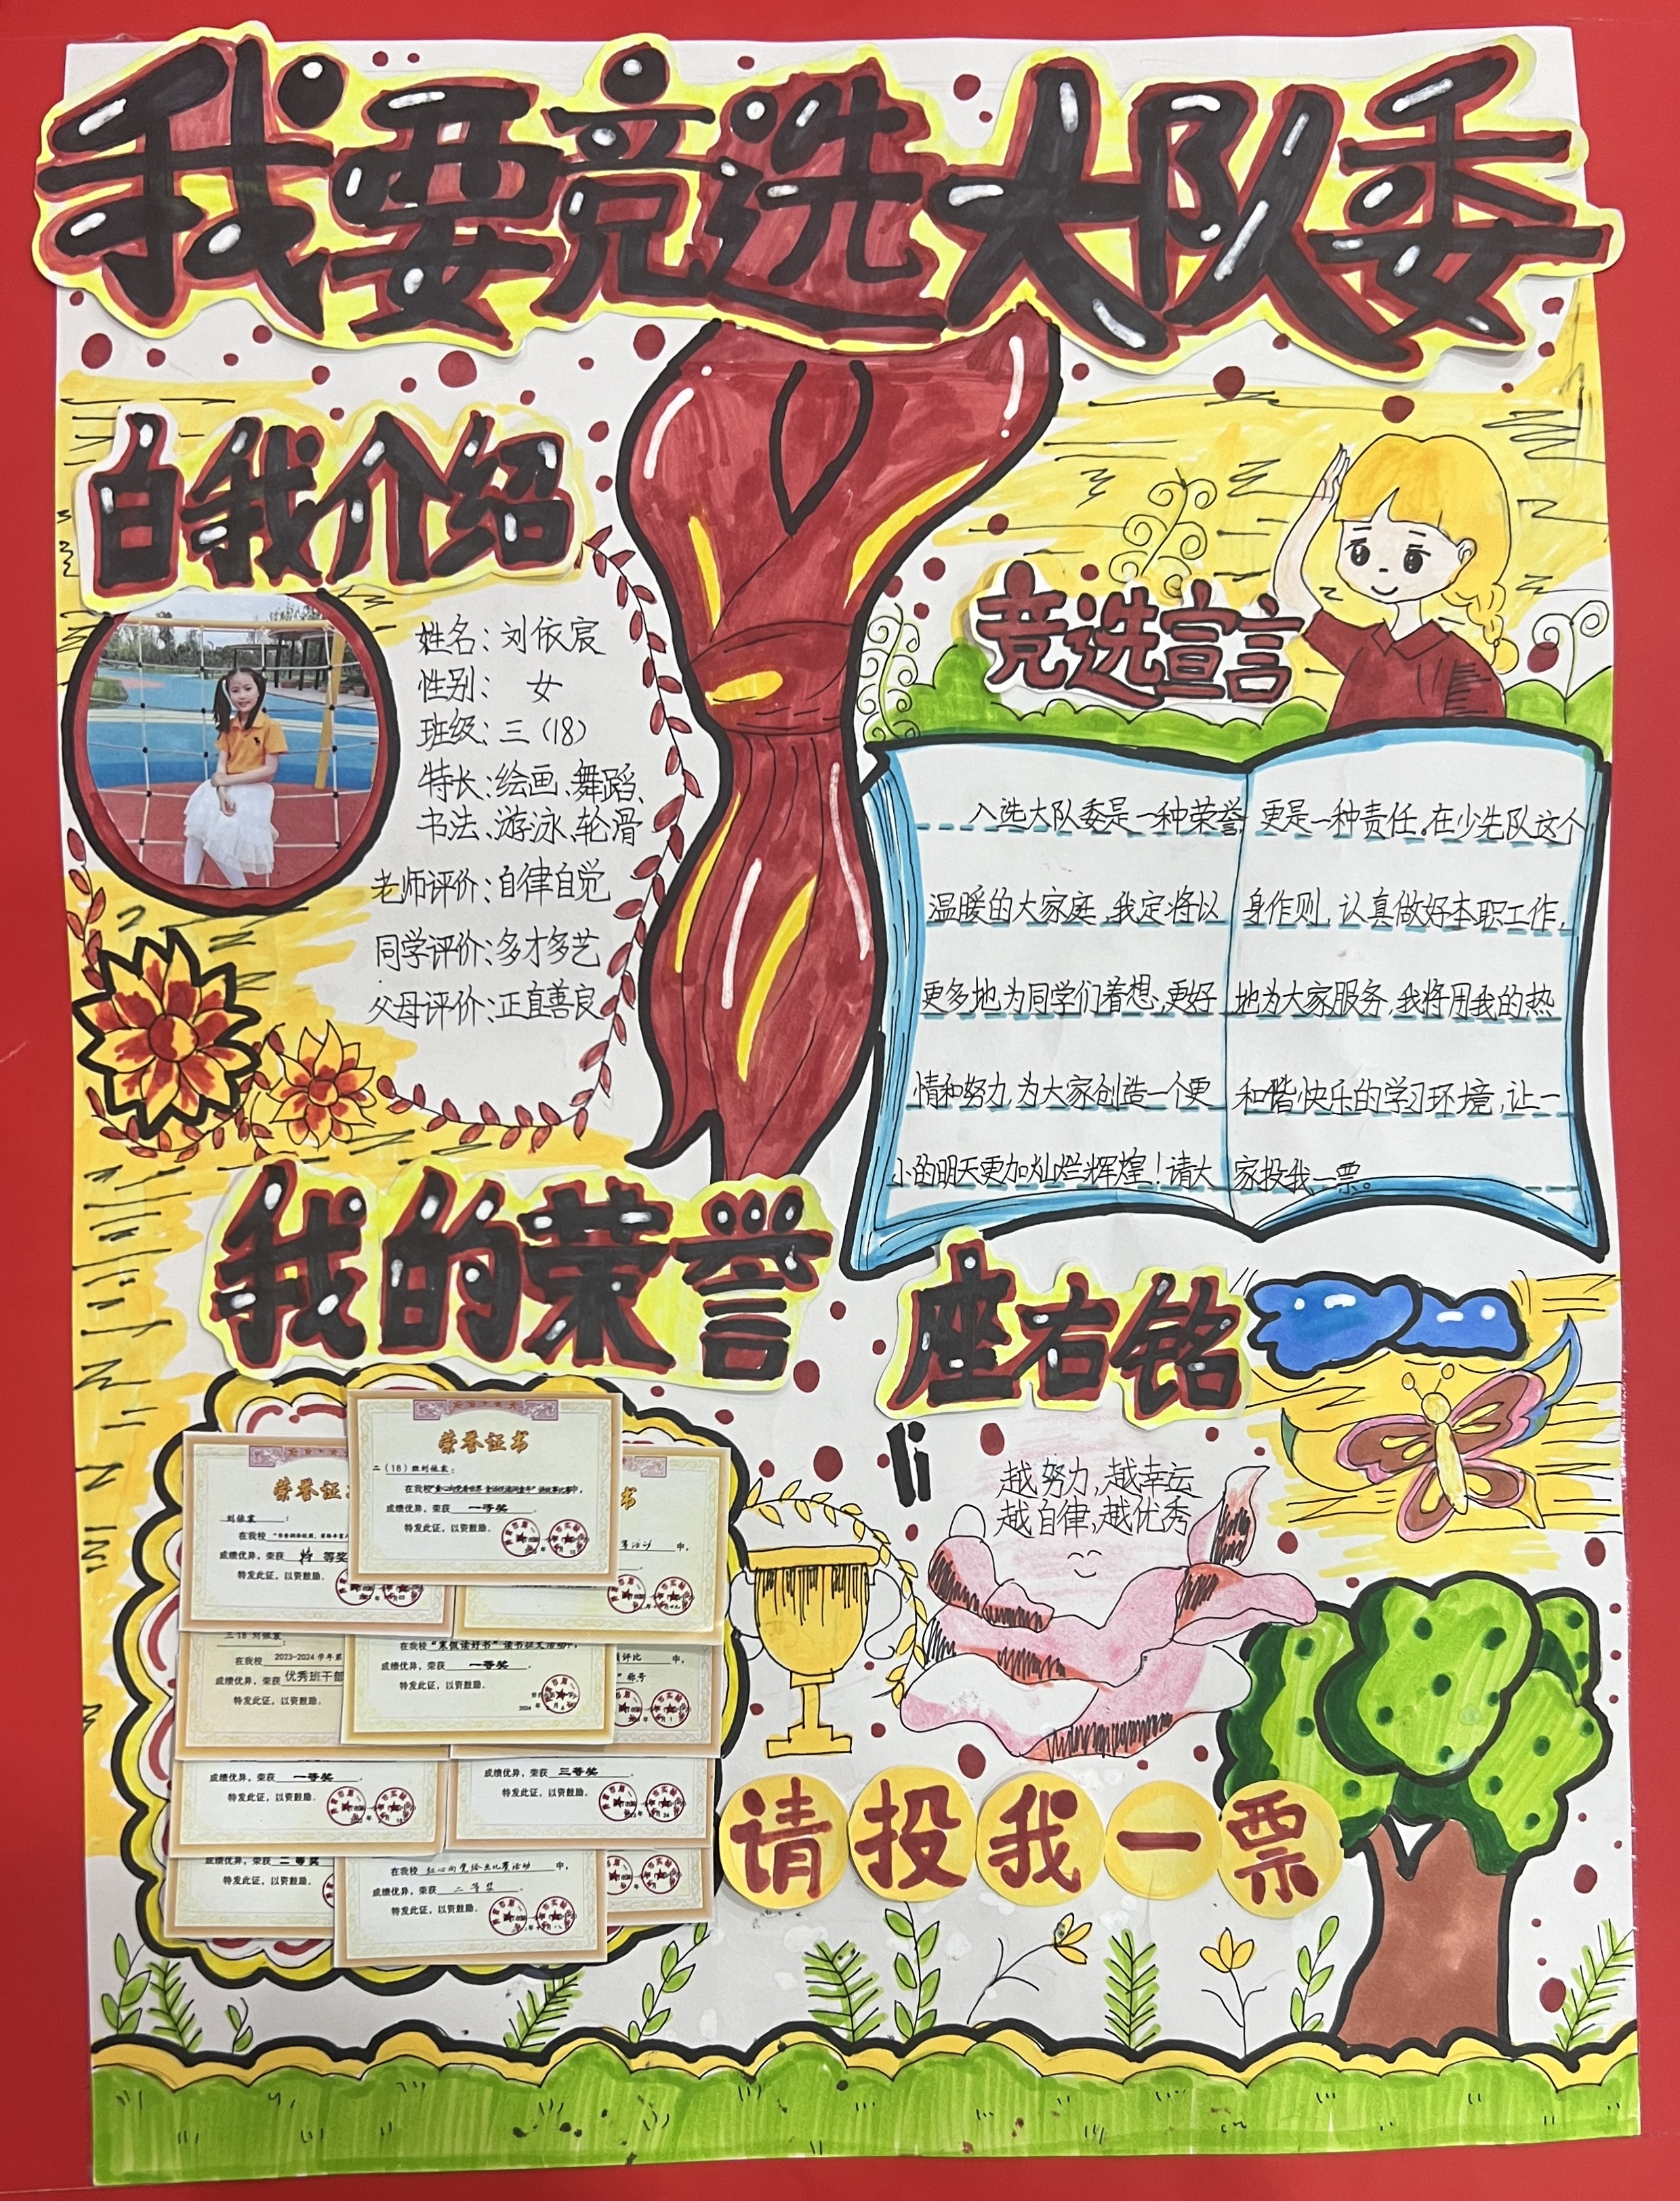 我要竞选大队委
自我介绍
姓名:刘依宸
性别: 女
班级:三(18)
特长:绘画、舞蹈、
书法、游泳、轮滑
老师评价:自律自觉
同学评价:多才多艺
父母评价:正直善良
竞选宣言
入选大队委是一种荣誉,更是一种责任。在少先队这个
温暖的大家庭,我定将以身作则,认真做好本职工作,
更多地为同学们着想,更好地为大家服务,我将用我的热
情和努力,为大家创造一个更和谐快乐的学习环境,让一
小的明天更加灿烂辉煌!请大家投我一票。
我的荣誉
荣誉证书
二(18)班刘依宸:
成绩优异,荣获 一等奖 。
特发此证,以资鼓励。
荣誉证
刘依宸 :
在我校
成绩优异,荣获 等奖
特发此证,以资鼓励。
书
中,
三18 刘依宸
在我校 2023-2024学年第
成绩优异,荣获 优秀班干部
特发此证,以资鼓励。
在我校"寒假读好书"读书征文活动中,
成绩优异,荣获 一等奖 。
特发此证,以资鼓励。
评比 中,
"称号
成绩优异,荣获 一等奖 。
特发此证,以资鼓励。
成绩优异,荣获 三等奖 。
特发此证,以资鼓励。
成绩优异,荣获 二等奖
特发此证,以资鼓励。
在我校 红心向党绘画比赛活动 中,
成绩优异,荣获 二等奖 。
特发此证,以资鼓励。
座右铭
越努力,越幸运
越自律,越优秀
请投我一票